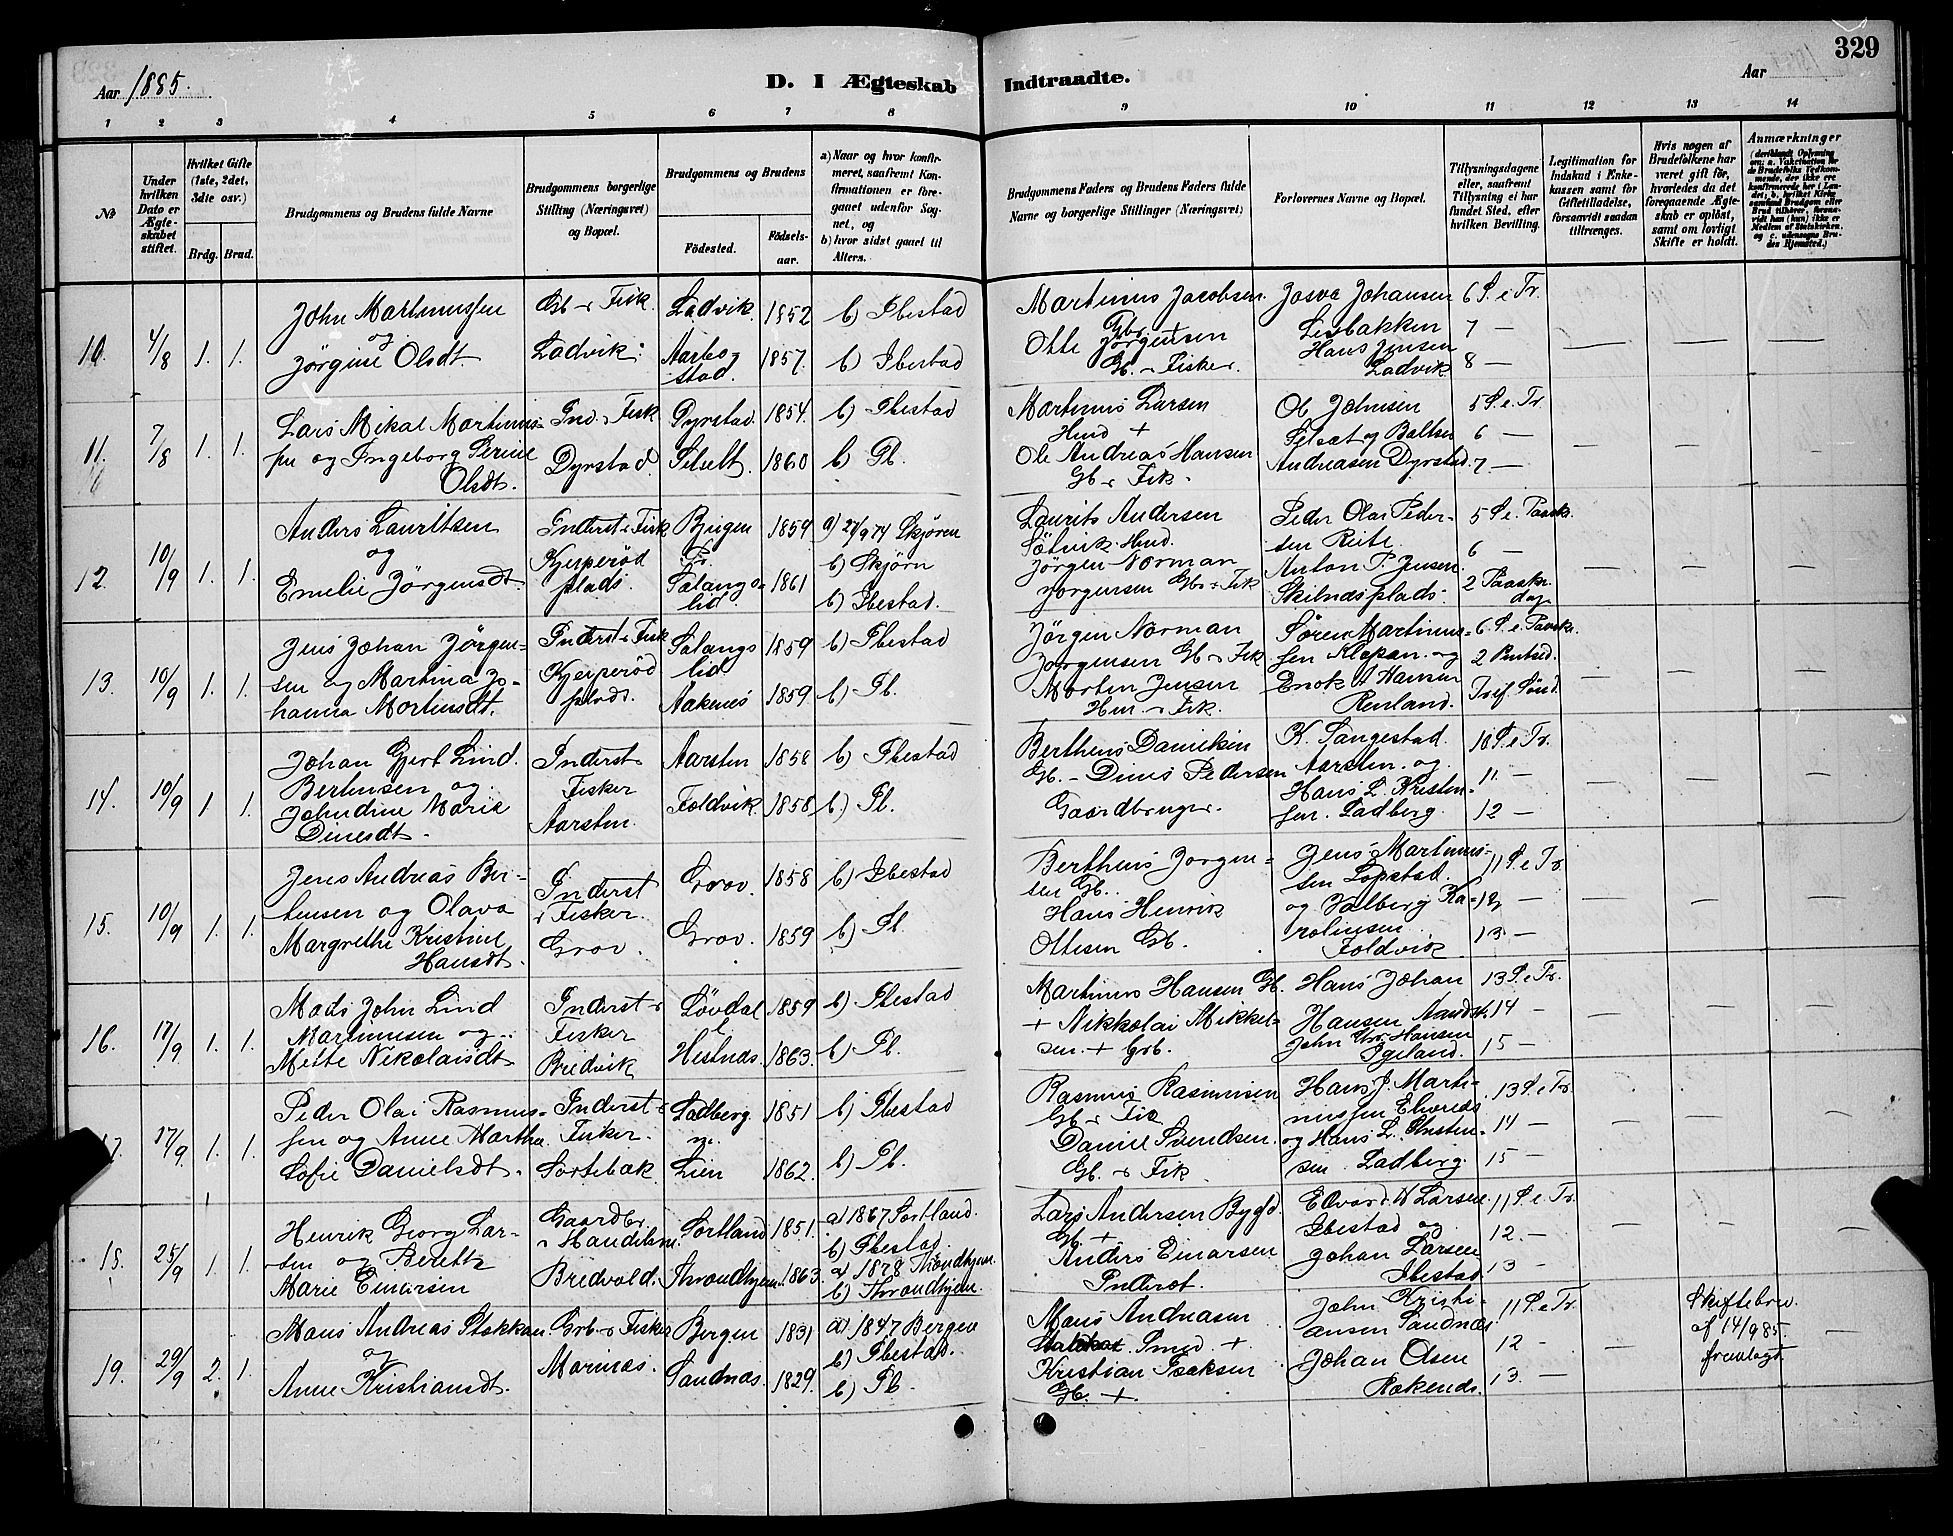 329
Aar 1885.
D. I Ægteskab Indtraadte.
Aar
1 2 3 4 5 6 7 8 9 10 11 12 13 14
No
Under hvilken Dato er Ægteskabet stiftet.
Hvilket Gifte (1ste, 2det, 3die osv.)
Brdg. Brud.
Brudgommens og Brudens fulde Navne
Brudgommens borgerlige Stilling (Næringsvei) og Bopæl.
Brudgommens og Brudens
Fødested.
Fødselsaar.
a) Naar og hvor konfirmeret, saafremt Konfirmationen er foregaaet udenfor Sognet, og
b) hvor sidst gaaet til Alters.
Brudgommens Faders og Brudens Faders fulde Navne og borgerlige Stillinger (Næringsvei)
Forlovernes Navne og Bopæl.
Tillysningsdagene eller, saafremt Tillysning ei har fundet Sted, efter hvilken Bevilling.
Legitimation for Indskud i Enkekassen samt for Giftetilladelse, forsaavidt saadan tiltrænges.
Hvis nogen af Brudefolkene har været gift før, hvorledes da det foregaaende Ægteskab er opløst, samt om lovligt Skifte er holdt.
Anmærkninger
10. 4/8 1. 1.
John Martinussen
og
Jørgine Olsdt.
Gb - Fisk.
Ladvik
Ladvik. 1852 b) Ibestad
Aarbogstad. 1857. b) Ibestad
Martinus Jacobsen
Gbr +
Otte Jørgensen
Gb. - Fisker.
Josva Johansen
Lerbakken
Hans Jensen
Ladvik
6 S. e Tr.
7 —
8 —
11. 7/8 1. 1.
Lars Mikal Martinussen og Ingeborg Serine
Olsdt.
Ind. - Fisk
Dyrstad
Dyrstad. 1854. b) Ibestad
1860 b) Ib.
Martinus Larsen
Husd +
Ole Andreas Hansen
Gb - Fisk.
Ol. Johnsen
og Baltser
Andreasen Dyrstad
5 S. e. Tr.
6 —
7 —
12. 10/9 1. 1.
Anders Lauritsen
og
Emelie Jørgensdt
Inderst - Fisk
Kjeiperød
plads.
Bjugen
Pr. 1859 a) 27/9 74 Skjøren
b) Skjørn
Salangslid. 1861 b) Ibestad.
Laurits Andersen
Husd.
Jørgen Norman
Jørgensen Gb - Fisk
Peder Olai Pedersen
Anton P. Jensen
Skilnæsplads.
5 S. e. Paaske.
6 —
2 Paaskedag
13. 10/9 1. 1.
Jens Johan Jørgensen og Martina Johanna Mortensdt.
Inderst - Fisk
Kjeiperød
plads.
Salangslid 1859 b) Ibestad
Aakenes 1859 b) Ib.
Jørgen Norman
Jørgensen Gb - Fisk
Morten Jensen
Hm. - Fisk.
Søren Martinussen Klopan. og
Enok A Hansen
Renland.
6 S. e. Paaske.
2 Pintsed.
Tref. Sønd.
14. 10/9 1 1.
Johan Gjert Lind
Bertinsen og
Johndine Marie
Dinesdt.
Inderst -
Fisker
Aarsten.
Aarsten 1858 b) Ibestad
Foldvik 1858 b) Ib.
Berthens Danielsen
Gb. - Dines Pedersen
Gaardbruger.
K. Sangestad.
Aarsten. og
Hans L. Kristensen. Ladberg.
10 S. e Tr.
11 —
12 —
15. 10/9 1. 1.
Jens Andreas Bertensen og Olava
Margrethe Kristine
Hansdt.
Inderst
- Fisker.
Grov.
Grov. 1858 b) Ibestad
Grov. 1859 b) Ib.
Berthens Jørgensen Gb.
Hans Henrik
Ottesen Gb.
Jens Martinussen Løpstad.
og Jalberg Karolinsen.
Foldvik
11 S. e Tr.
12 —
13 —
16. 17/9 1. 1.
Mads John Lind
Martinusen og
Mette Nikolaisdt
Inderst -
Fisker
Bredvik
Løvdal 1859 b) Ibestad
Hestnæs. 1863. b) Ib.
Martinus Hansen Gb.
+ Nikkolai Mikkelsen. + Grb.
Hans Johan
Hansen Aandst.
John Chr. Hansen
Igeland.
13 S. e Tr.
14 —
15 —
17. 17/9 1. 1.
Peder Olai Rasmussen og Anne Martha
Sofie Danielsdt.
Inderst -
Fisker.
Sortebæk
Ladberg 1851 b) Ibestad
Lien 1862. b) Ib.
Rasmus Rasmussen
Gb - Fisk
Daniel Svendsen.
Gb. - Fisk
Hans J. Martinussen
og Hans L. Kristensen. Ladberg.
13 S. e Tr.
14 —
15 —
18. 25/9 1. 1.
Henrik Georg Larsen og Berette
Marie Einarsen
Gaardbr.
- Handelsm.
Bredvold.
Sortland 1851. a) 1867 Sortland.
b) Ibestad
Throndhjem. 1863. a) 1878 Throndhjem
b) Throndhjem.
Lars Andersen Bygd
Gb. +
Anders Einarsen
Inderst.
Edvard H Larsen
Ibestad og
Johan Larsen
Ibestad
11 S. e. Tr.
12. —
13 —
19. 29/9 2. 1.
Mons Andreas Stokkan
og
Anne Kristiansdt.
Grb. - Fisker
Marinæs.
Bergen 1831 a) 1847 Bergen
b) Ibestad.
Sandnæs. 1829. b) Ib.
Mons Andreasen
Smed +
Kristian Isaksen
Gb. +
John Kristiansen Sandnæs
Johan Olsen
Rakenes.
11 S. e Tr.
12 —
13. —
Skiftebrev.
af 14/9 85.
fremlagt.